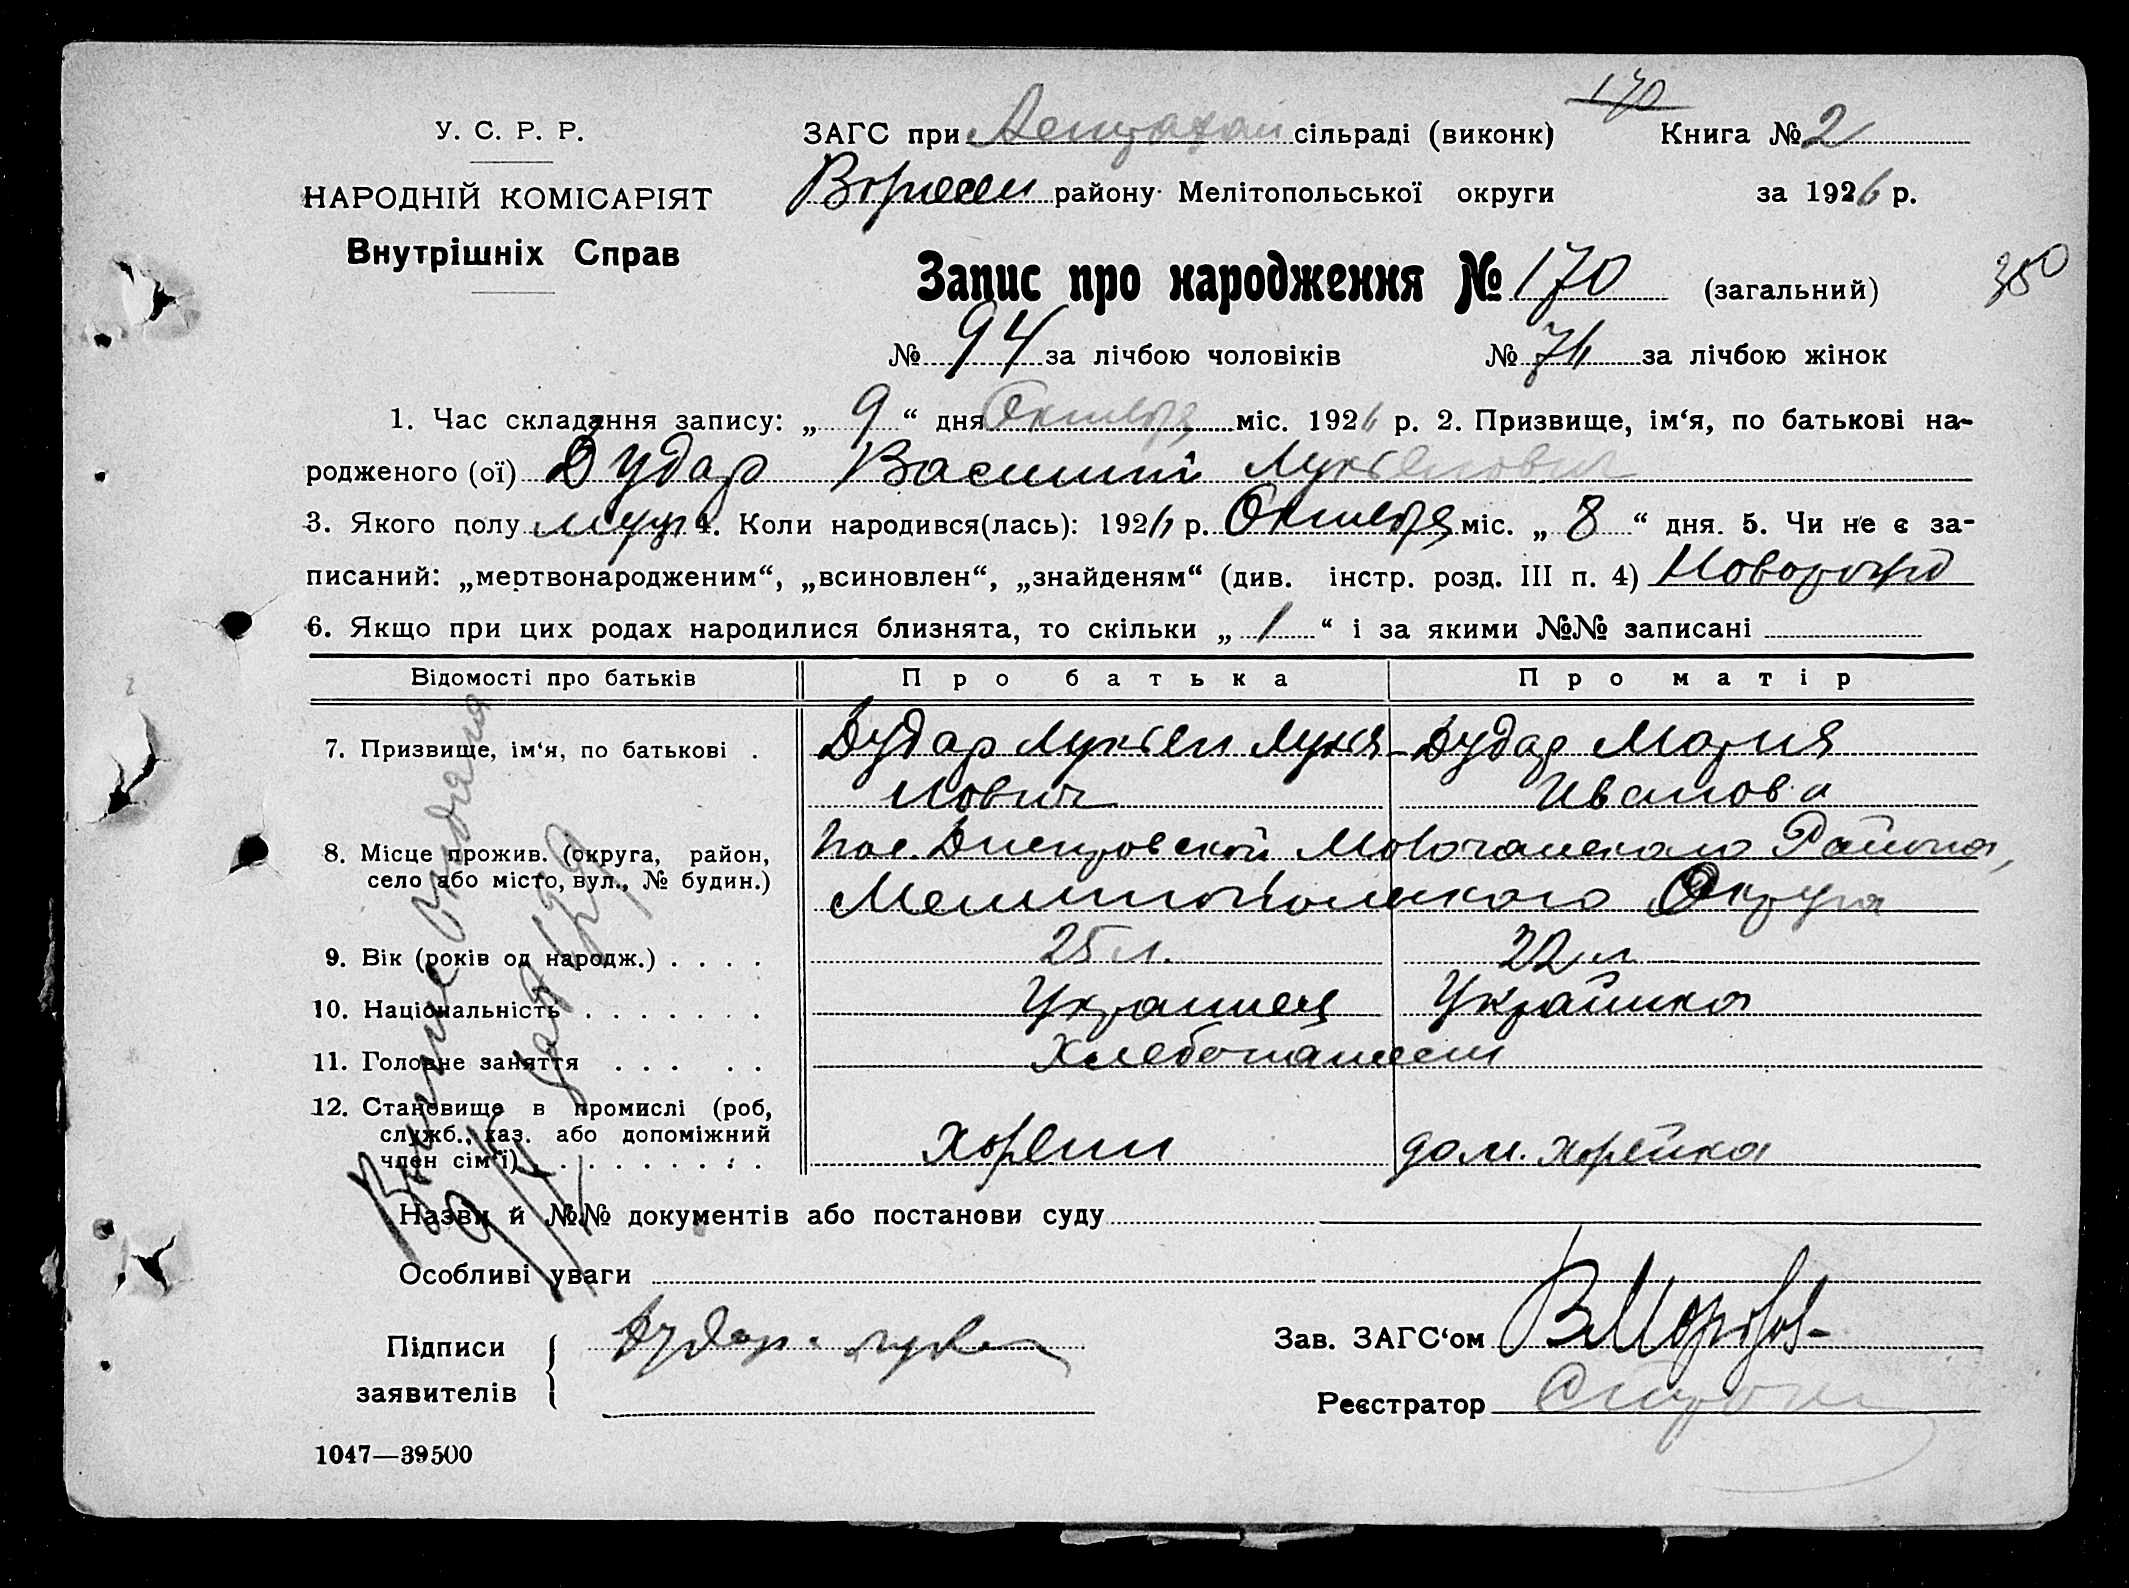 170
У. С. Р. Р.
ЗАГС при сільраді (виконк) Книга № 2
НАРОДНІЙ КОМІСАРІЯТ
району Мелітопольської округи за 1926 р.
Внутрішніх Справ
Запис про народження № 170 (загальний) 350
№ 94 за лічбою чоловіків № за лічбою жінок
1. Час складання запису: „ 9 “ дня Октября міс. 1926 р. 2. Призвище, ім‘я, по батькові на-
родженого (ої) Дудар Василий Лукянович
3. Якого полу муж 4. Коли народився(лась): 1926 р. Октября міс. „ 8 “ дня. 5. Чи не є за-
писаний: „мертвонародженим“, „всиновлен“, „знайденям“ (див. інстр. розд. III п. 4) Новорожд
6. Якщо при цих родах народилися близнята, то скільки „ 1 “ і за якими №№ записані
Відомості про батьків Про батька Про матір
7. Призвище, ім‘я, по батькові . Дудар Лукян Лукя- Дудар Мария
нович Иванова
8. Місце прожив. (округа, район, Пос. Днепровской Молочанского Района,
село або місто, вул., № будин.) Мелитопольского Округа
9. Вік (років од народж.) . . . . 25 л. 22 л
10. Національність . . . . . . . Украинец Украинка
11. Головне заняття . . . . . Хлебопашест
12. Становище в промислі (роб,
служб., хаз. або допоміжний
член сім‘ї) . . . . . . . . . хозяин дом. хозяйка
Назви й №№ документів або постанови суду
Особливі уваги
Підписи Дудар
заявителів
Зав. ЗАГС‘ом
Реєстратор
1047—39500